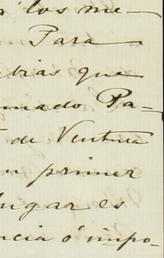 los me-
Para
bras que
mado Pa-
de Ventura
primer
lugar es
ncia ó impo-